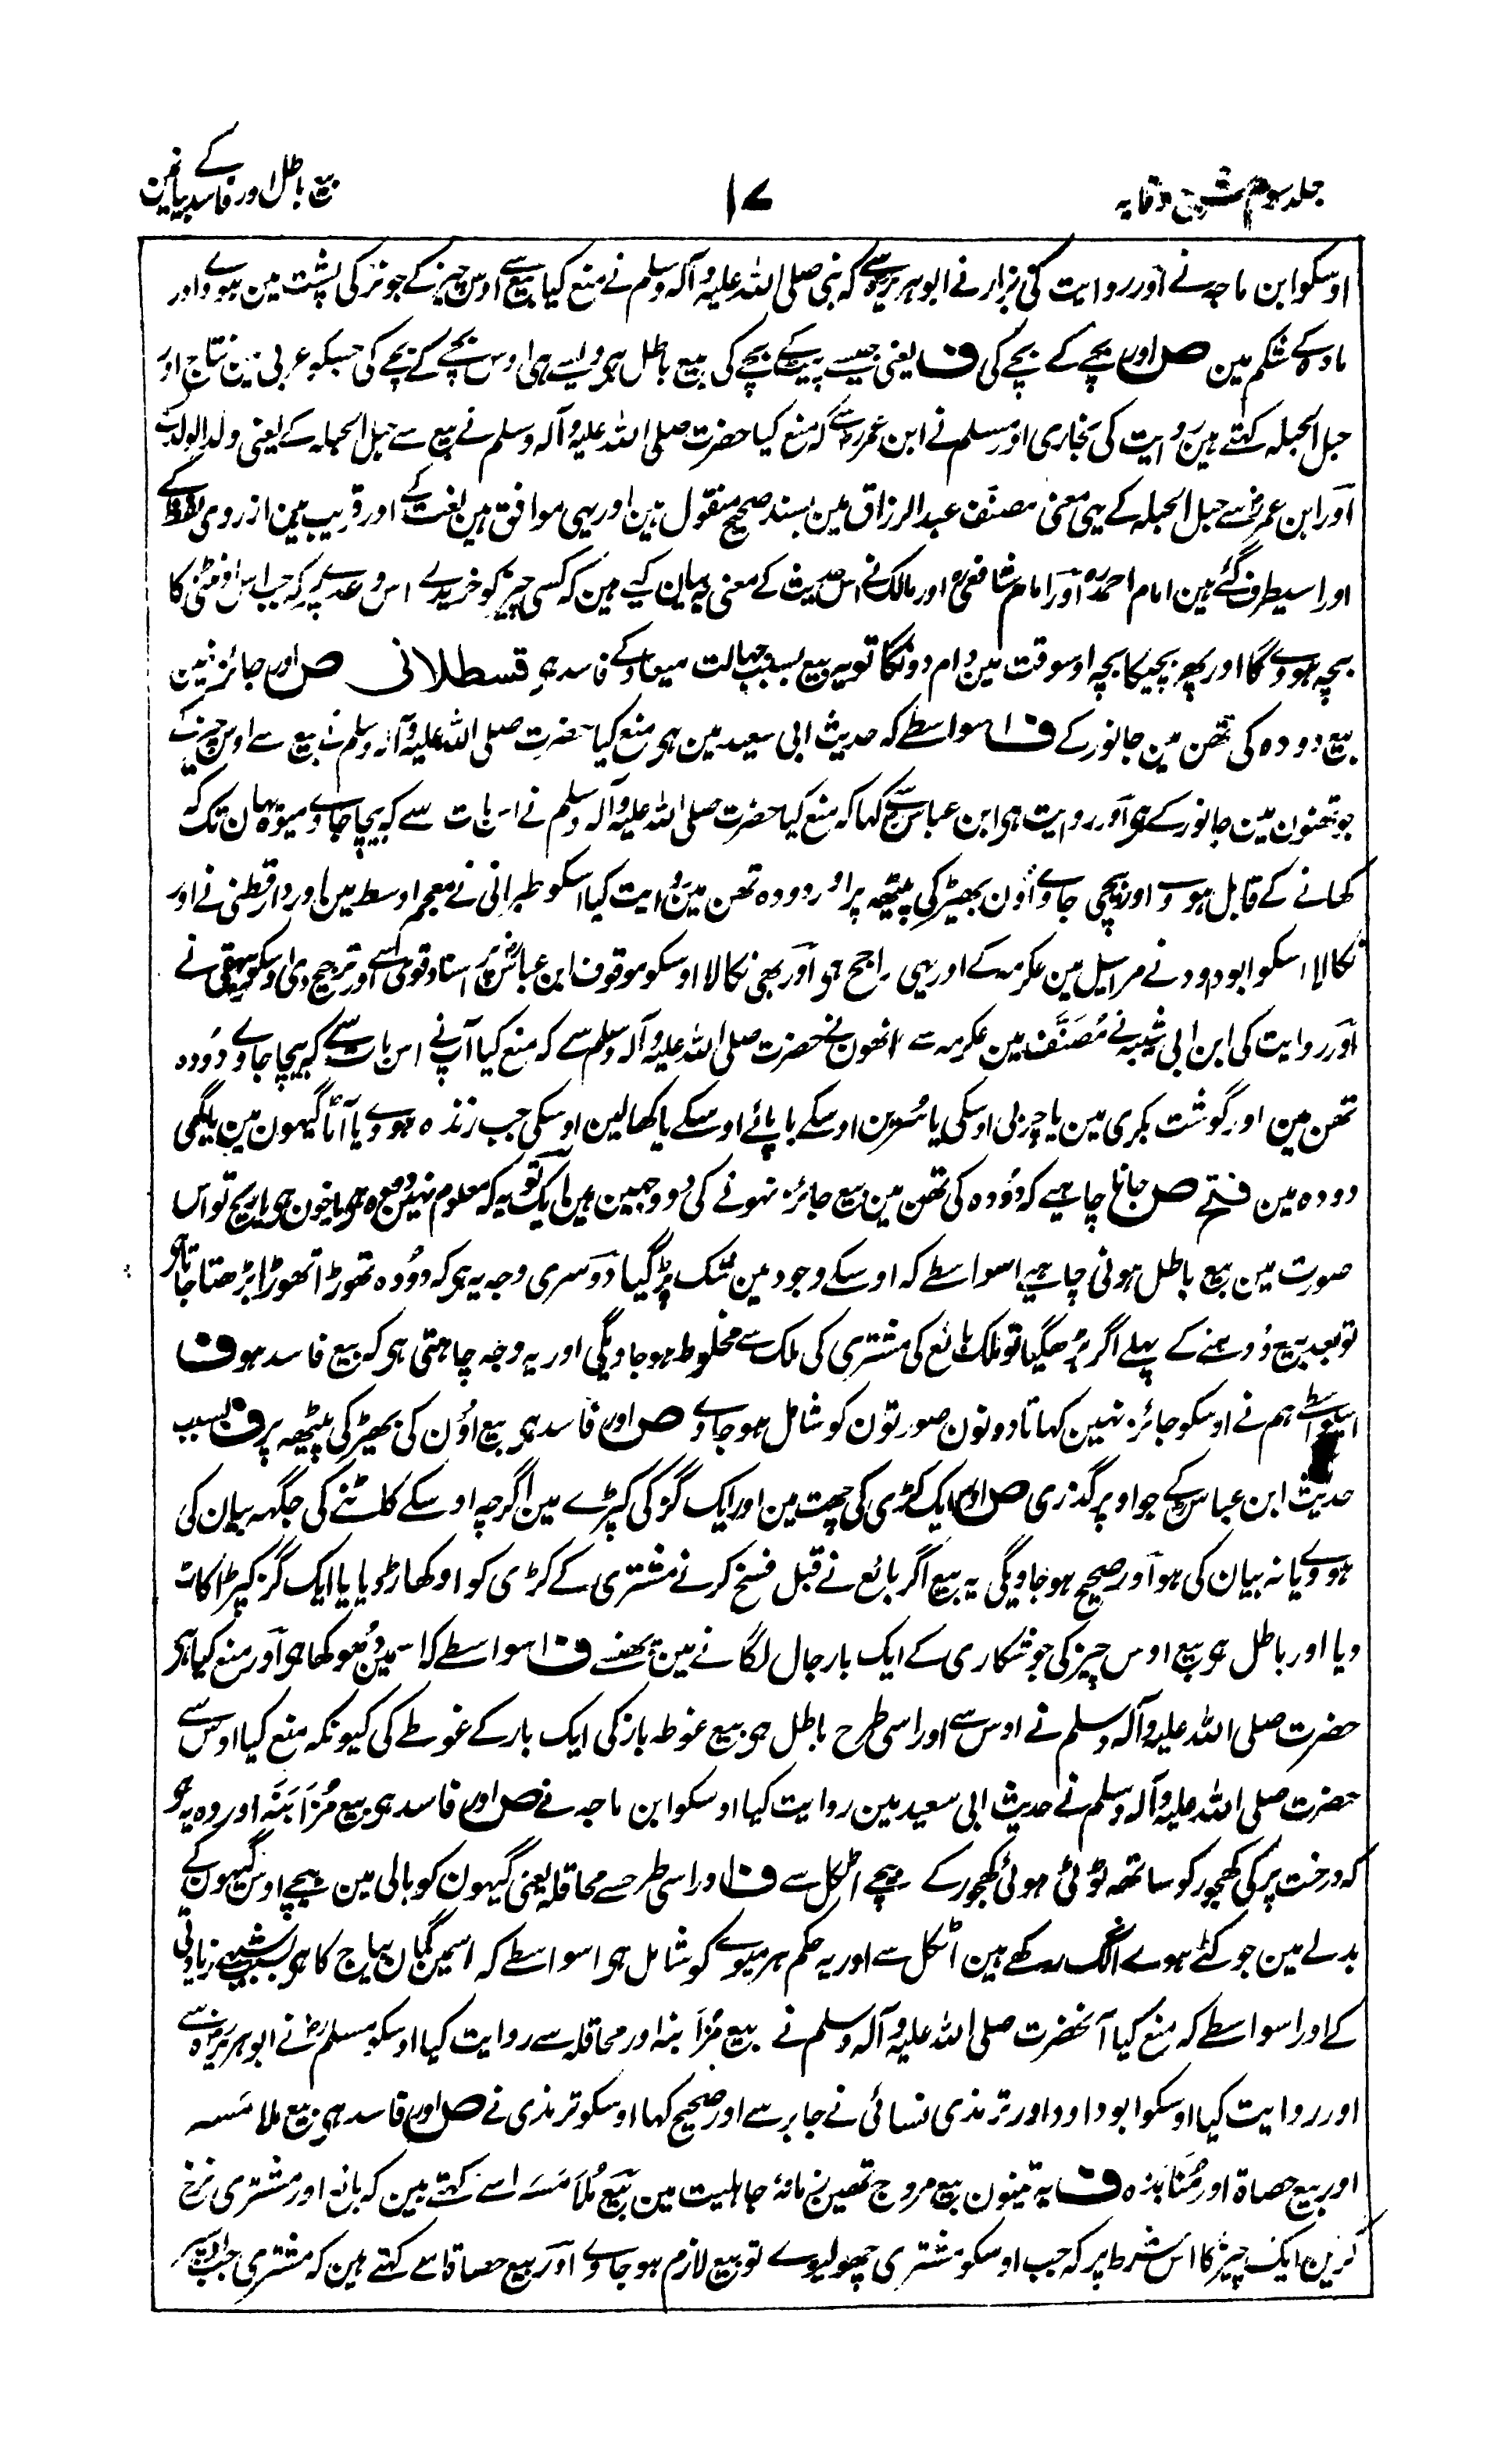 جلد سوم شرح وقایہ
۱۷
بیع باطل اور فاسد کے بیان مین
اوسکو ابن ماجہ نے اور روایت کی بزار نے ابوہریرہؓ سے کہ نبی صلی اللہ علیہ وآلہ وسلم نے منع کیا بیع سے اوس چیز کے جو نر کی پشت مین ہووے اور
مادہ کے شکم مین ص اور بچے کے بچے کی ف یعنی جیسے پیٹ کے بچے کی بیع باطل ہی ویسے ہی اوس بچے کے بچے کی جسکو عربی مین نتاج اور
حبل الحبلہ کہتے ہین روایت کی بخاری اور مسلم نے ابن عمرؓ سے کہ منع کیا حضرت صلی اللہ علیہ وآلہ وسلم نے بیع سے حبل الحبلہ کے یعنی ولد الولد
اور ابن عمرؓ سے حبل الحبلہ کے یہی معنی مصنف عبد الرزاق مین بسند صحیح منقول ہین اور یہی موافق ہین لغت کے اور قریب ہین ازروی لفظ کے
اور اسیطرف گئے ہین امام احمدؒ اور امام شافعیؒ اور مالکؒ نے اس حدیث کے معنی یہ بیان کیے ہین کہ کسی چیز کو خریدے اس وعدے پر کہ جب اس اونٹنی کا
بچہ ہووے گا اور پھر بچیکا بچہ اوسوقت مین دام دونگا تو یہ بیع بسبب جہالت میعاد کے فاسد ہی قسطلانی ص اور جائز نہین
بیع دودہ کی تھن مین جانور کے ف اسواسطے کہ حدیث ابی سعید مین ہی منع کیا حضرت صلی اللہ علیہ وآلہ وسلم نے بیع سے اوس چیز کے
جو تھنون مین جانور کے ہی اور روایت ہی ابن عباسؓ سے کہا کہ منع کیا حضرت صلی اللہ علیہ وآلہ وسلم نے اس بات سے کہ بیچا جاوے میوہ یہان تک کہ
کھانے کے قابل ہووے اور بیچی جاوے اون بھیڑ کی پیٹھ پر اور دودہ تھن مین روایت کیا اسکو طبرانی نے معجم اوسط مین اور دارقطنی نے اور
نکالا اسکو ابوداود نے مراسیل مین عکرمہ کے اور یہی راجح ہی اور بھی نکالا اوسکو موقوف ابن عباسؓ پر اسناد قوی سے اور ترجیح دی اوسکو بیہقی نے
اور روایت کی ابن ابی شیبہ نے مُصَنَّف مین عکرمہ سے انھون نے حضرت صلی اللہ علیہ وآلہ وسلم سے کہ منع کیا آپ نے اس بات سے کہ بیچا جاوے دودہ
تھن مین اور گوشت بکری مین یا چربی اوسکی یا سُرین اوسکے یا پائے اوسکے یا کھالین اوسکی جب زندہ ہووے یا آٹا گیہون مین یا گھی
دودہ مین فتح ص جاننا چاہیے کہ دودہ کی تھن مین بیع جائز نہونے کی دو وجہین ہین ایک تو یہ کہ معلوم نہین دودہ ہی یا خون ہی یا ریح تو اس
صورت مین بیع باطل ہونی چاہیے اسواسطے کہ اوسکے وجود مین شک پڑ گیا دوسری وجہ یہ ہی کہ دودہ تھوڑا تھوڑا بڑھتا جاتا ہی
تو بعد بیع دوہنے کے پہلے اگر بڑھ گیا تو ملک بائع کی مشتری کی ملک سے مخلوط ہو جاویگی اور یہ وجہ چاہتی ہی کہ بیع فاسد ہو ف
اسیواسطے ہم نے اوسکو جائز نہین کہا تا دونون صورتون کو شامل ہو جاوے ص اور فاسد ہی بیع اوُن کی بھیڑ کی پیٹھ پر ف بسبب
حدیث ابن عباسؓ کے جو اوپر گذری ص اور ایک کڑی کی چھت مین اور ایک گز کی کپڑے مین اگرچہ اوسکے کاٹنے کی جگہہ بیان کی
ہووے یا نہ بیان کی ہو اور صحیح ہو جاویگی یہ بیع اگر بائع نے قبل فسخ کرنے مشتری کے کڑی کو اوکھاڑ دیا یا ایک گز کپڑا کاٹ
دیا اور باطل ہی بیع اوس چیز کی جو شکاری کے ایک بار جال لگانے مین پھنسے ف اسواسطے کہ اسمین دُھوکھا ہی اور منع کیا ہی
حضرت صلی اللہ علیہ وآلہ وسلم نے اوس سے اور اسی طرح باطل ہی بیع غوطہ باز کی ایک بار کے غوطے کی کیونکہ منع کیا اوس سے
حضرت صلی اللہ علیہ وآلہ وسلم نے حدیث ابی سعید مین روایت کیا اوسکو ابن ماجہ نے ص اور فاسد ہی بیع مُزَابَنَہ اور وہ یہ ہی
کہ درخت پر کی کھجور کو ساتھ ٹوٹی ہوئی کھجور کے بیچے اٹکل سے ف اور اسی طرح سے محاقلہ یعنی گیہون کو بالی مین بیچے اوس گیہون کے
بدلے مین جو کٹے ہوے الگ رکھے ہین اٹکل سے اور یہ حکم ہر میوے کو شامل ہی اسواسطے کہ اسمین گمان بیاج کا ہی بسبب شبہے زیادتی
کے اور اسواسطے کہ منع کیا آنحضرت صلی اللہ علیہ وآلہ وسلم نے بیع مُزَابنہ اور محاقلہ سے روایت کیا اوسکو مسلمؒ نے ابوہریرہؓ سے
اور روایت کیا اوسکو ابوداود اور ترمذی نسائی نے جابر سے اور صحیح کہا اوسکو ترمذی نے ص اور فاسد ہی بیع ملامَسہ
اور بیع حصاۃ اور مُنَابَذہ ف یہ تینون بیع مروج تھین زمانۂ جاہلیت مین بَیع مُلَامَسَہ اسے کہتے ہین کہ بائع اور مشتری نرخ
کرین ایک چیز کا اس شرط پر کہ جب اوسکو مشتری چھو لیوے تو بیع لازم ہو جاوے اور بیع حصاۃ اسے کہتے ہین کہ مشتری جب